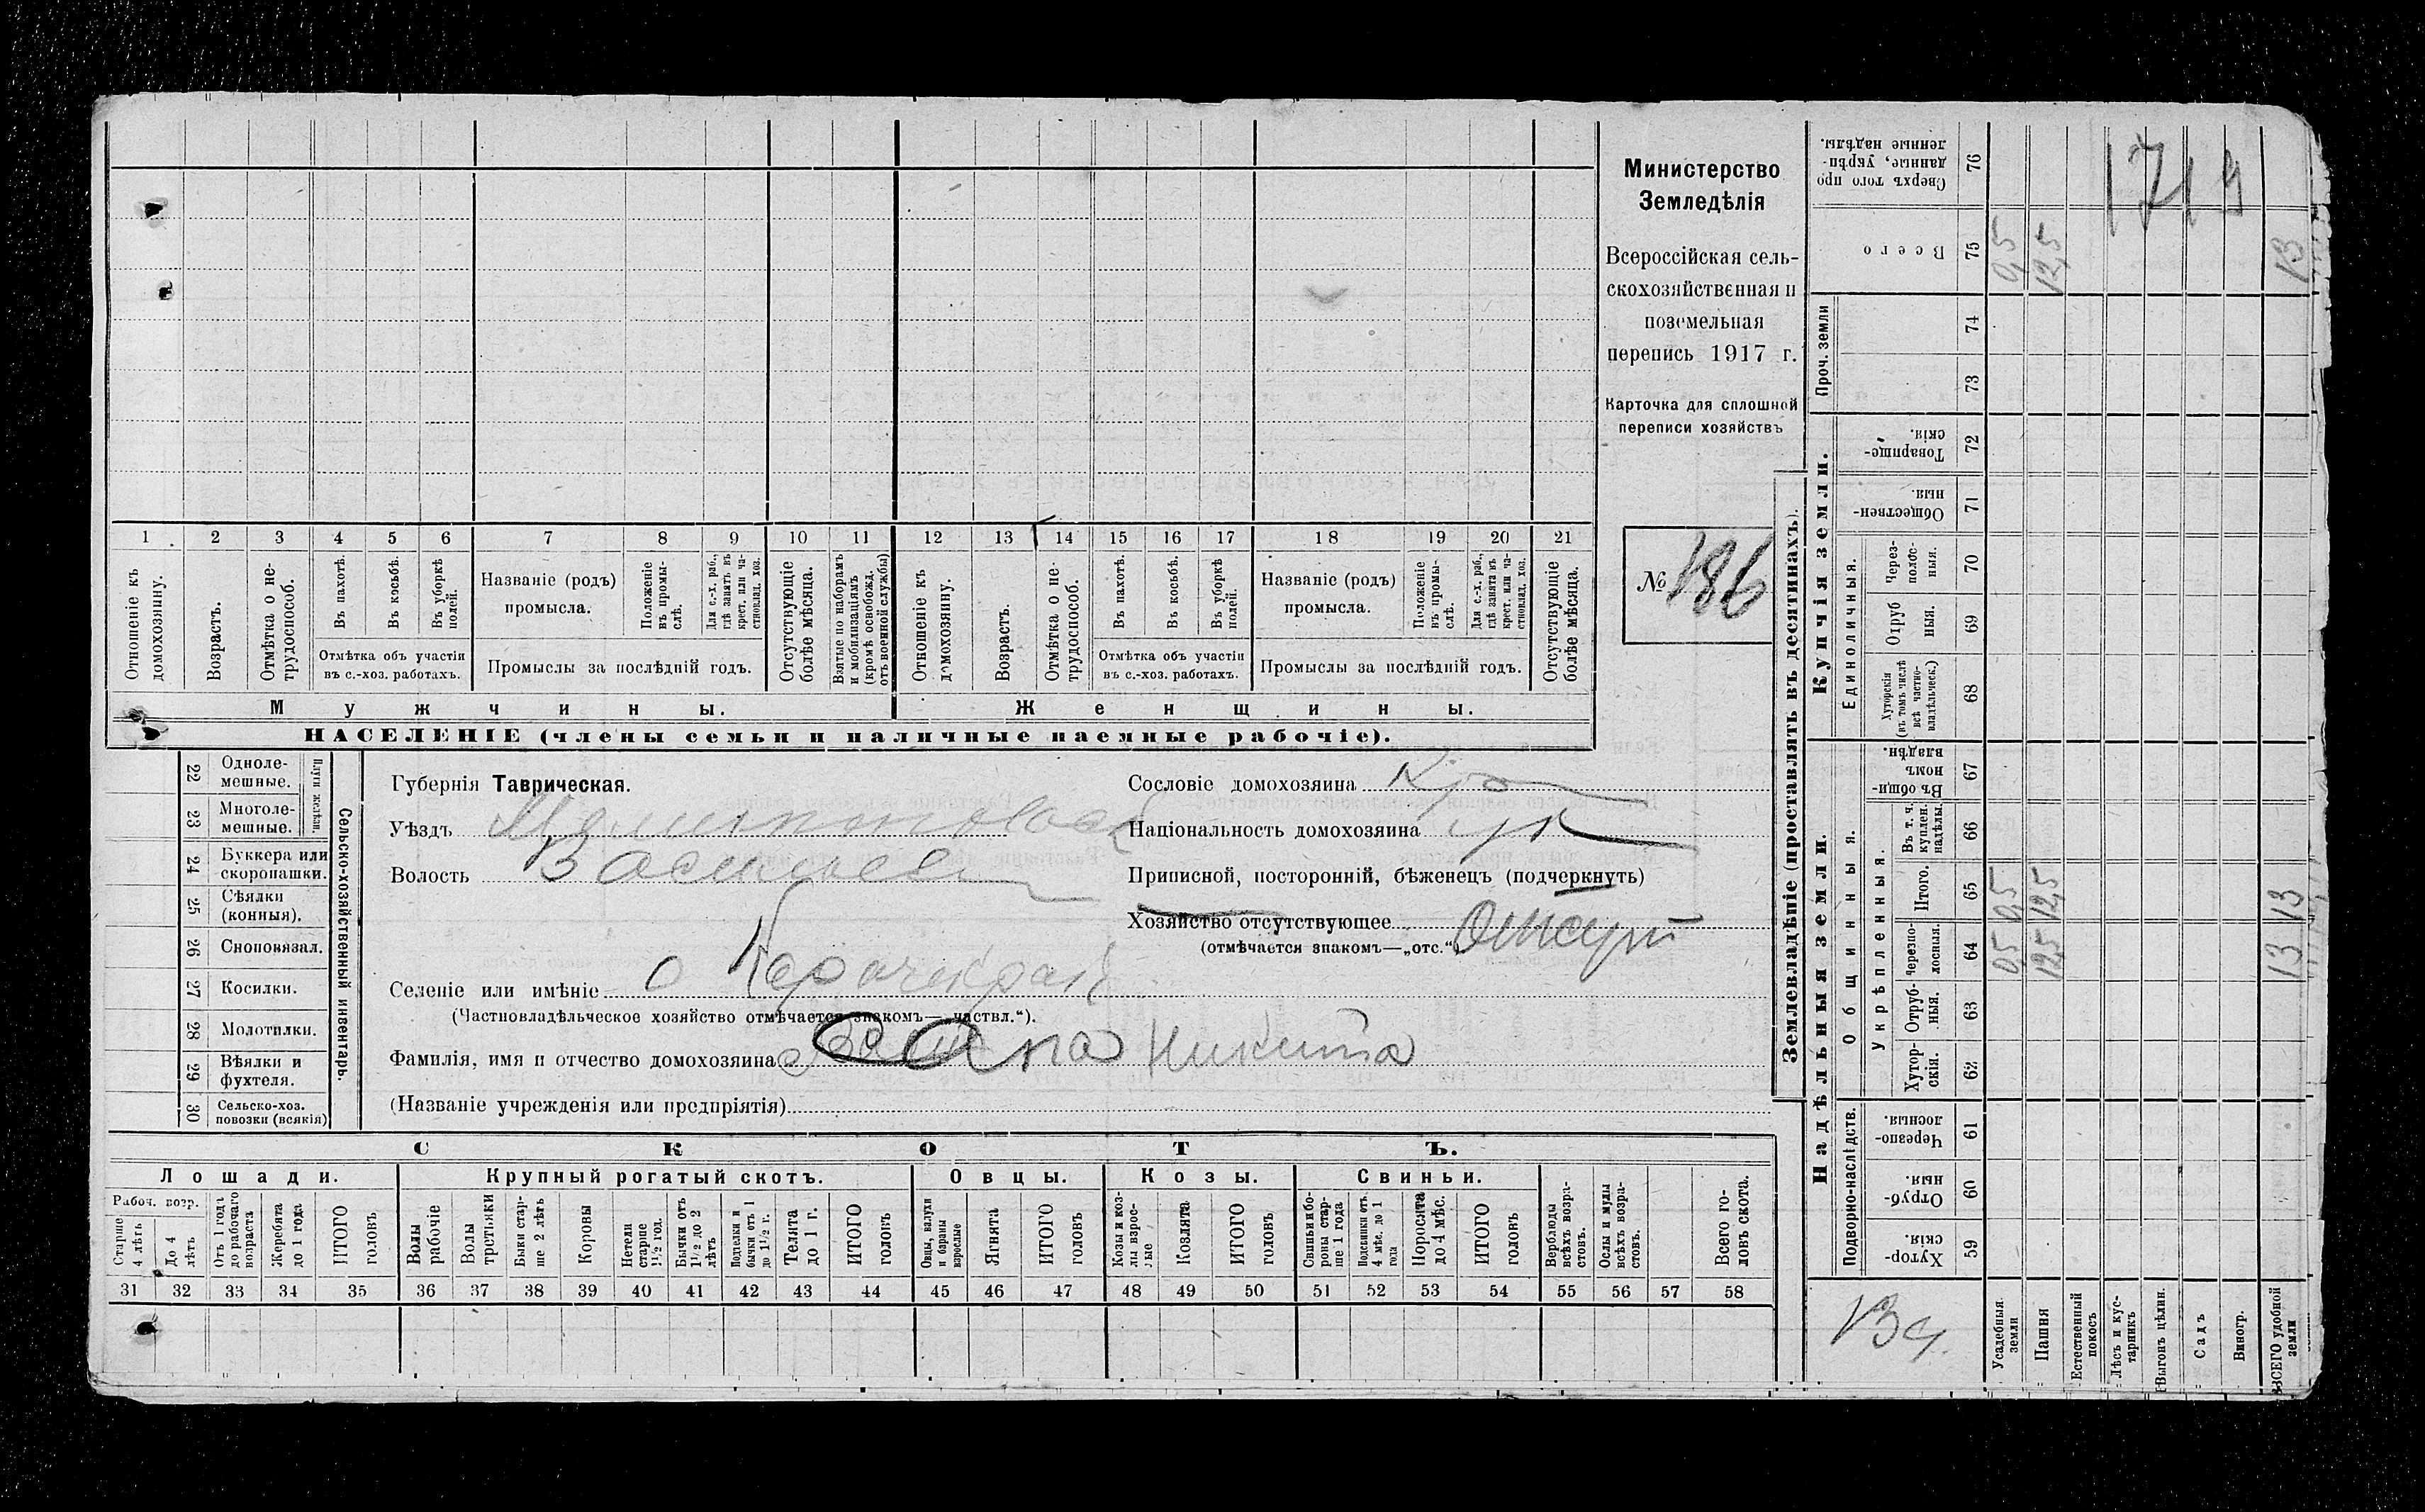 1 2 3 4 5 6 7 8 9 10 11 12 13 14 15 16 17 18 19 20 21
Отношеніе къ домохозяину.
Возрастъ.
Отмѣтка о не-
трудоспособ.
Въ пахотѣ.
Въ косьбѣ.
Въ уборкѣ
полей.
Отмѣтка объ участіи
въ с.-хоз. работахъ.
Названіе (родъ)
промысла.
Положеніе
въ промы-
слѣ.
Для с.-х. раб.,
гдѣ занятъ въ
крест. или ча-
стновлад. хоз.
Промыслы за послѣдній годъ.
Отсутствующіе
болѣе мѣсяца.
Взятые по наборамъ
и мобилизаціямъ
(кромѣ освобожд.
отъ военной службы)
Отношеніе къ
домохозяину.
Возрастъ.
Отмѣтка о не-
трудоспособ.
Въ пахотѣ.
Въ косьбѣ.
Въ уборкѣ
полей.
Отмѣтка объ участіи
въ с.-хоз. работахъ.
Названіе (родъ)
промысла.
Положеніе
въ промы-
слѣ.
Для с.-х. раб.,
гдѣ занята въ
крест. или ча-
стновлад. хоз.
Промыслы за послѣдній годъ.
Отсутствующіе
болѣе мѣсяца.
Мужчины.
Женщины.
НАСЕЛЕНІЕ (члены семьи и наличные наемные рабочіе).
Министерство
Земледѣлія
Всероссійская сель-
скохозяйственная и
поземельная
перепись 1917 г.
Карточка для сплошной
переписи хозяйствъ
№ 186
22 Одноле-
мешные.
23 Многоле-
мешные.
Плуги желѣзн.
24 Буккера или
скоропашки.
25 Сѣялки
(конныя).
26 Сноповязал.
27 Косилки.
28 Молотилки.
29 Вѣялки и
фухтеля.
30 Сельско-хоз.
повозки (всякія)
Сельско-хозяйственный инвентарь.
Губернія Таврическая.
Уѣздъ
Волость Васильев
Селеніе или имѣніе с
(Частновладѣльческое хозяйство отмѣчается знакомъ—„частвл.“).
Фамилія, имя и отчество домохозяина Никита
(Названіе учрежденія или предпріятія)
Сословіе домохозяина Кр
Національность домохозяина ук
Приписной, посторонній, бѣженецъ (подчеркнуть)
Хозяйство отсутствующее Отсут
(отмѣчается знакомъ—„отс.“)
СКОТЪ.
Лошади. Крупный рогатый скотъ. Овцы. Козы. Свиньи.
Рабоч. возр.
Старше
4 лѣтъ
До 4
лѣтъ
Отъ 1 года
до рабочаго
возраста
Жеребята
до 1 года
ИТОГО
головъ
Волы
рабочіе
Волы
третьяки
Быки стар-
ше 2 лѣтъ
Коровы
Нетели
старше
1½ год.
Бычки отъ
1½ до 2
лѣтъ
Подтелки и
бычки отъ 1
до 1½ г.
Телята
до 1 г.
ИТОГО
головъ
Овцы, валухи
и бараны
взрослые
Ягнята
ИТОГО
головъ
Козы и коз-
лы взрос-
лые
Козлята
ИТОГО
головъ
Свиньи и бо-
ровы стар-
ше 1 года
Подсвинки отъ
4 мѣс. до 1
года
Поросята
до 4 мѣс.
ИТОГО
головъ
Верблюды
всѣхъ возра-
стовъ.
Ослы и мулы
всѣхъ возра-
стовъ.
Всего го-
ловъ скота.
31 32 33 34 35 36 37 38 39 40 41 42 43 44 45 46 47 48 49 50 51 52 53 54 55 56 57 58
Землевладѣніе (проставлять въ десятинахъ).
Надѣльныя земли.
Купчія земли.
Проч. земли
Подворно-наслѣдств.
Общинныя.
Укрѣпленныя.
Единоличныя.
Сверхъ того про
данные, укрѣп-
ленные надѣлы. 76
Всего 75 0,5 12,5 13
74
73
Товарище-
скія. 72
Обществен-
ныя. 71
Через-
полос-
ныя. 70
Отруб
ныя. 69
Хуторскія
(въ томъ числѣ
всѣ частно-
владѣльческ.) 68
Въ общин-
номъ
владѣн. 67
Въ т. ч.
куплен.
надѣлы. 66
Итого. 65 0,5 12,5 13
Черезпо-
лосныя. 64 0,5 12,5 13
Отруб-
ныя. 63
Хутор-
скія. 62
Черезпо-
лосныя. 61
Отруб-
ныя. 60
Хутор-
скія. 59
1719
Усадебныя
земли
Пашня
Естественный
покосъ
Лѣсъ и кус-
тарникъ
Выгонъ цѣлин.
Садъ
Виногр.
ВСЕГО удобной
земли